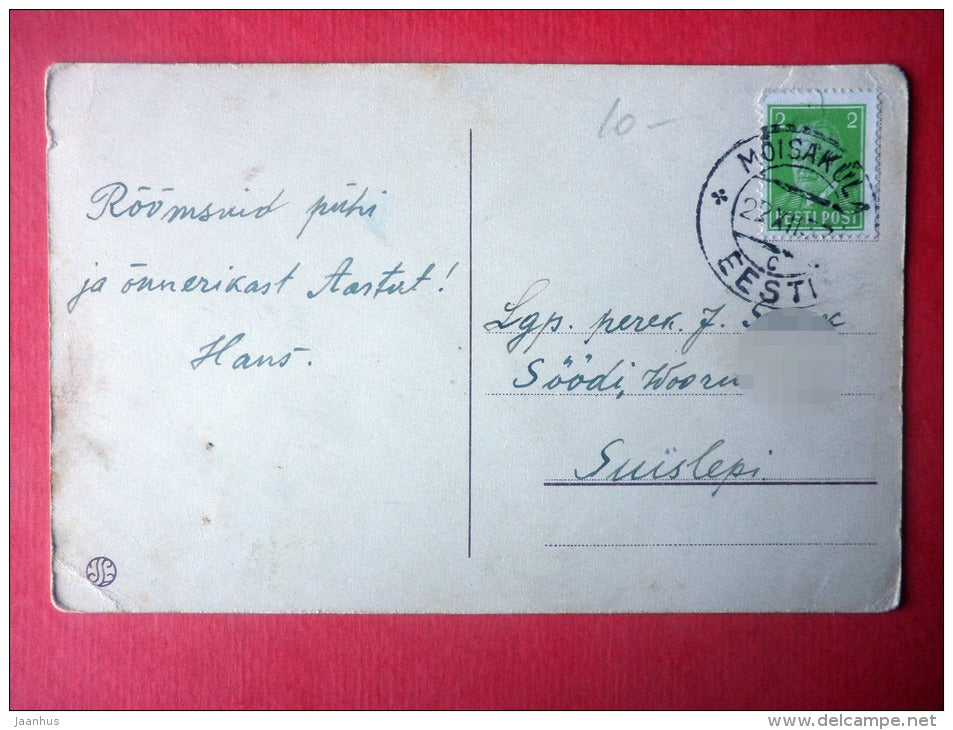 10 –
2 2
EESTI POST
MÕISAKÜLA
EESTI
C
Rõõmsaid pühi
ja õnnerikast Aastat!
Hans.
Lgp. perek. J.
Söödi, Wooru
Suislepi.
jaanhus
www.delcampe.net